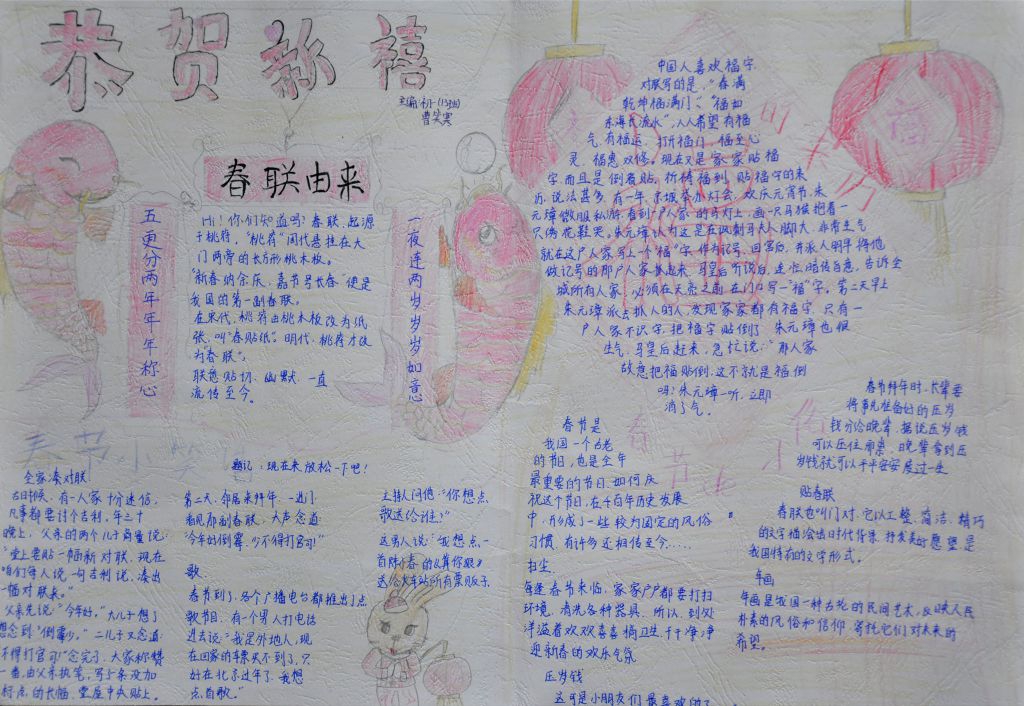 恭贺新禧
主编:初一(13班)
曹笑寞
春联由来
五更分两年年年称心
一夜连两岁岁岁如意
Hi!你们知道吗?春联,起源
于桃符,“桃符”周代悬挂在大
门两旁的长方形桃木板。
“新春纳余庆,嘉节号长春”便是
我国的第一副春联。
在宋代,桃符由桃木板改为纸
张,叫“春贴纸”。明代,桃符才改
为“春联”。
联意贴切、幽默、一直
流传至今。
春节小笑
题记:现在来放松一下吧!
全家凑对联
古时候,有一人家十分迷信,
凡事都要讨个吉利,年三十
晚上,父亲的两个儿子商量说:
“堂上要贴一幅新对联,现在
咱们每人说一句吉利话,凑出
一幅对联来。”
父亲先说:“今年好,”大儿子想了
想念到“倒霉少,”二儿子又念道
不得打官司!”念完了,大家称赞
一番,由父亲执笔,写了一条没加
标点的长幅,堂屋中央贴上。
第二天,邻居来拜年,一进门
看见那副春联,大声念道:
“今年好倒霉,少不得打官司!”
歌
春节到了,各个广播电台都推出了点
歌节目,有个男人打电话
进去说:“我是外地人,现
在回家的车票买不到了,只
好在北京过年了,我想
点首歌。”
主持人问他:“你想点
歌送给谁?”
这男人说:“我想点一
首陈小春的《算你狠》
送给火车站所有票贩子。
中国人喜欢福字,
对联写的是,“春满
乾坤福满门”、“福如
东海长流水”,人人希望有福
气、有福运,打开福门,福至心
灵,福惠双修。现在又是家家贴福
字,而且是倒着贴,祈祷福到,贴福字的来
历,说法甚多,有一年,京城举办灯会,欢庆元宵节,朱
元璋微服私游,看到一户人家的马灯上,画一只马猴抱着一
只绣花鞋哭。朱元璋认为这是在讽刺马夫人脚大,非常生气
就在这户人家写上一个“福”字,作为记号,回宫后,并派人明早将他
做记号的那户人家抓起来,马皇后听说后,连忙暗传旨意,告诉全
城所有人家,必须在天亮之前在门口写一“福”字。第二天早上
朱元璋派去抓人的人,发现家家都有福字,只有一
户人家不识字,把福字贴倒了,朱元璋也很
生气,马皇后赶来,急忙说:“那人家
故意把福贴倒,这不就是福倒
吗!朱元璋一听,立即
消了气。
春节小
春节是
我国一个古老
的节日,也是全年
最重要的节日,如何庆
祝这个节日,在千百年历史发展
中,形成了一些较为固定的风俗
习惯,有许多还相传至今……
扫尘
每逢春节来临,家家户户都要打扫
环境,清洗各种器具,所以,到处
洋溢着欢欢喜喜搞卫生,干干净净
迎新春的欢乐气氛
压岁钱
这可是小朋友们最喜欢的了
春节拜年时,长辈要
将事先准备好的压岁
钱分给晚辈,据说压岁钱
可以压住邪祟,晚辈拿到压
岁钱就可以平平安安度过一年
贴春联
春联也叫门对,它以工整、简洁、精巧
的文字描绘出时代背景,抒发美好愿望,是
我国特有的文学形式。
年画
年画是我国一种古老的民间艺术,反映人民
朴素的风俗和信仰,寄托它们对未来的
希望。